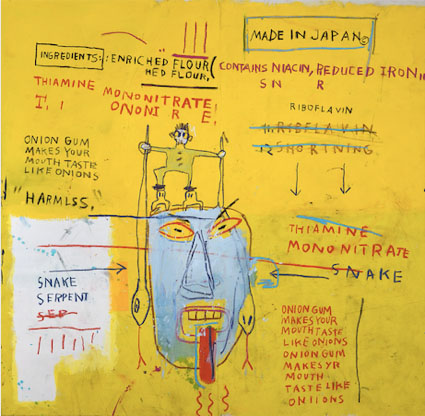 MADE IN JAPAN
INGREDIENTS: : ENRICHED FLOUR (
HED FLOUR,
CONTAINS NIACIN, REDUCED IRON,
SN R
THIAMINE MONONITRATE
T. I ONONI R E!
RIBOFLAVIN
11. RIBFLAVIN
12 SHORTNING
ONION GUM
MAKES YOUR
MOUTH TASTE
LIKE ONIONS
"HARMLSS,"
THIAMINE
MONONITRATE
SNAKE
SNAKE
SERPENT
SEP
ONION GUM
MAKES YOUR
MOUTH TASTE
LIKE ONIONS
ONION GUM
MAKES YR
MOUTH
TASTE LIKE
ONIIONS